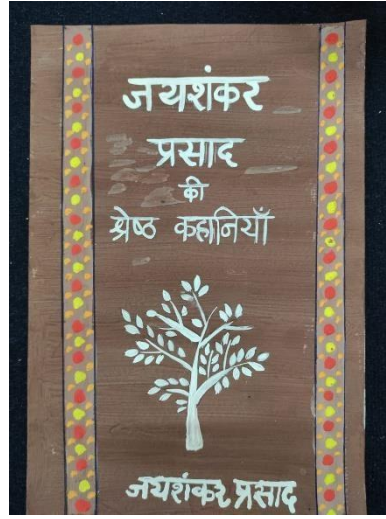 जयशंकर
प्रसाद
की
श्रेष्ठ कहानियाँ
जयशंकर प्रसाद